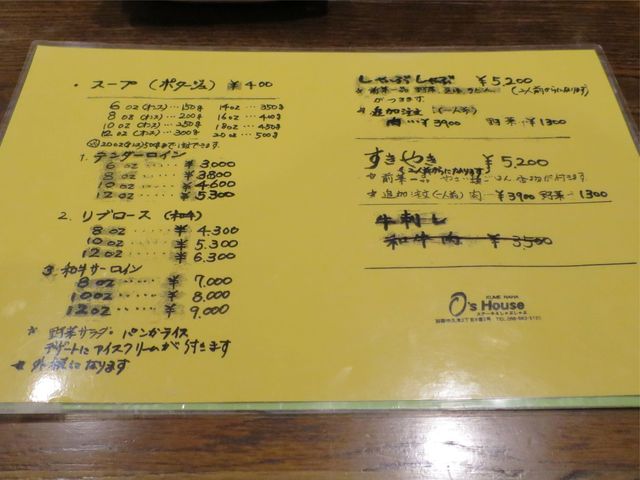 ・スープ (ポタージュ) ¥400
6 oz (オンス)…150g 14oz…350g
8 oz (オンス)…200g 16oz…400g
10 oz (オンス)…250g 18oz…450g
12 oz (オンス)…300g 20oz…500g
1. テンダーロイン
6 oz …… ¥3000
8 oz …… ¥3800
10 oz …… ¥4600
12 oz …… ¥5300
2. リブロース (和牛)
8 oz …… ¥4.300
10 oz …… ¥5.300
12 oz …… ¥6.300
3. 和牛サーロイン
8 oz …… ¥7.000
10 oz …… ¥8,000
12 oz …… ¥9,000
☆ 野菜サラダ・パンかライス
デザートにアイスクリームが付きます
☆ 外税になります
しゃぶしゃぶ ¥5,200
☆ 前菜一品 野菜 (2人前からになります)
がつきます。
☆ 追加注文 (一人前)
肉…¥3900 野菜…¥1300
すきやき ¥5,200
(2人前からになります)
☆ 前菜一品
☆ 追加注文(一人前) 肉…¥3900 野菜…1300
牛刺し
和牛肉 ¥3,500
KUME NAHA
O's House
ステーキ&しゃぶしゃぶ